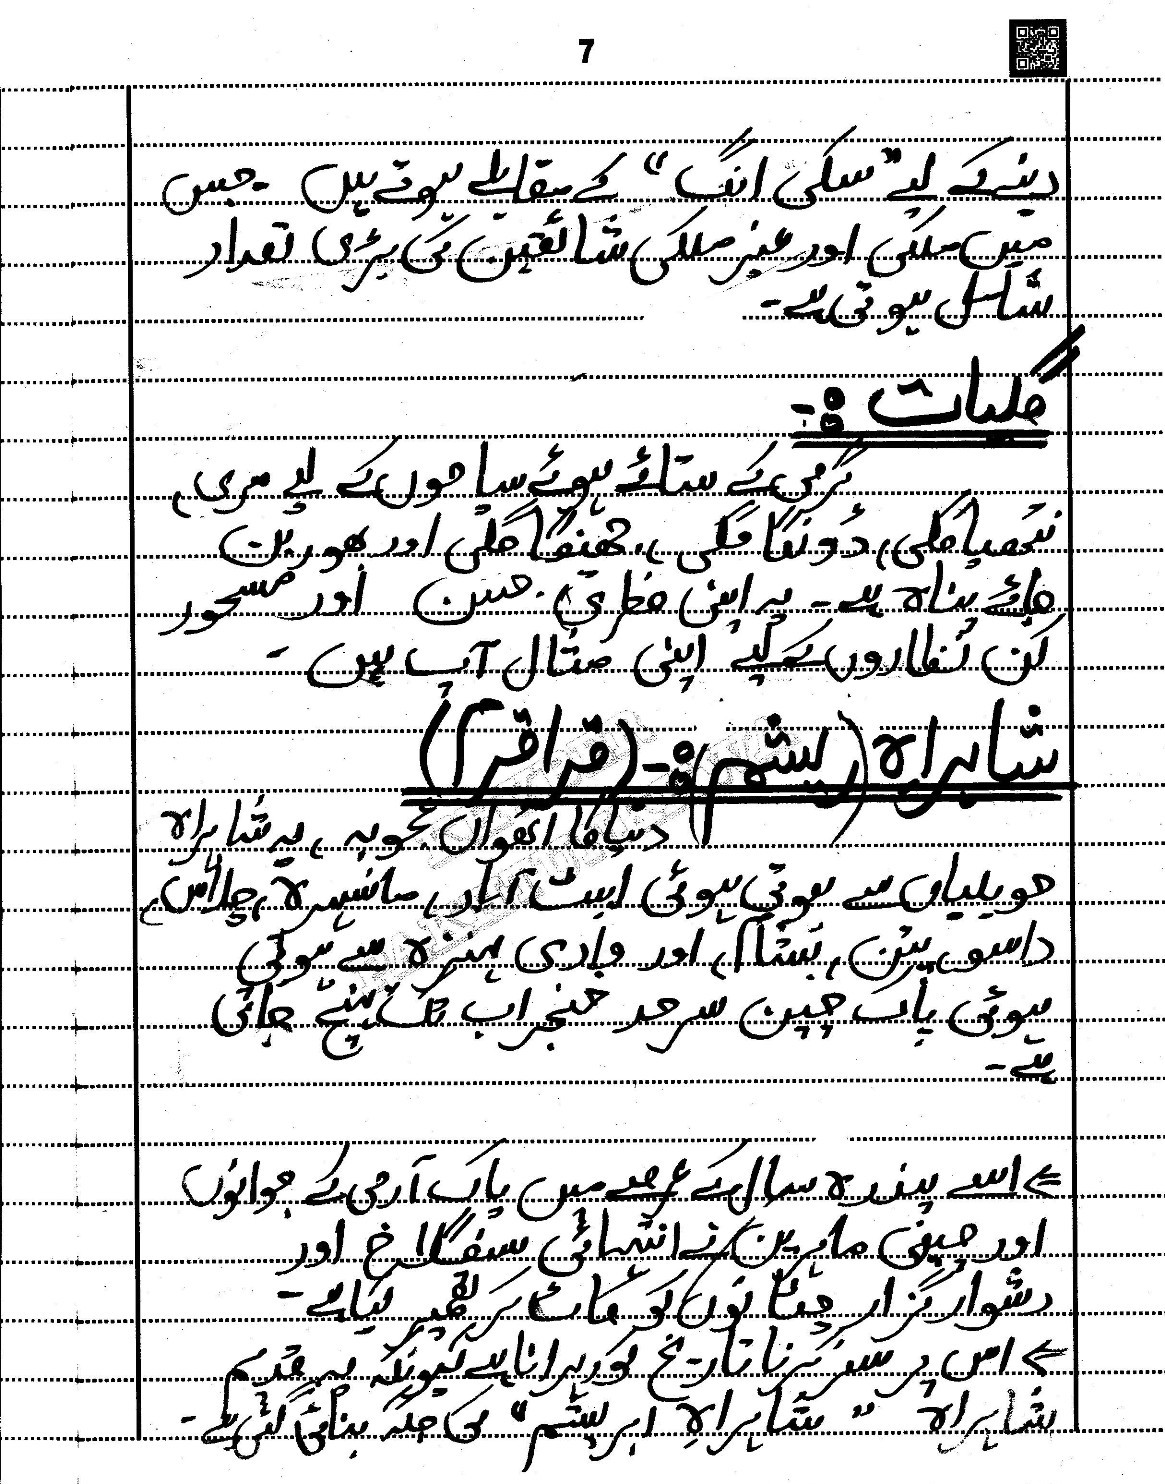 7
دینے کے لیے ”سکی انگ“ کے مقابلے ہوتے ہیں ۔ جس
میں ملکی اور غیر ملکی شائقین کی بڑی تعداد
شامل ہوتی ہے۔
گلیات :-
گرمی کے ستائے ہوئے سیاحوں کے لیے مری،
نتھیاگلی، ڈونگا گلی، چھینکا گلی اور بھوربن
جائے پناہ ہے ۔ یہ اپنی فطری حسن اور مسحور
کن نظاروں کے لیے اپنی مثال آپ ہیں ۔
شاہراہ (ریشم) :- (قراقرم)
دنیا کا آٹھواں عجوبہ ، یہ شاہراہ
حویلیاں سے ہوتی ہوئی ایبٹ آباد، مانسہرہ، چلاس،
داسو، پٹن، بشام، اور وادی ہنزہ سے ہوتی
ہوئی پاک چین سرحد خنجراب تک پہنچ جاتی
ہے ۔
⇐ اسے پندرہ سال کے عرصے میں پاک آرمی کے جوانوں
اور چینی ماہرین نے انتہائی سنگلاخ اور
دشوار گزار چٹانوں کو کاٹ کر تعمیر کیا ہے ۔
⇐ اس پر سفر کرنا تاریخ کو دہرانا ہے کیونکہ یہ قدیم
شاہراہ ”شاہراہِ ابریشم“ کی جگہ بنائی گئی ہے ۔